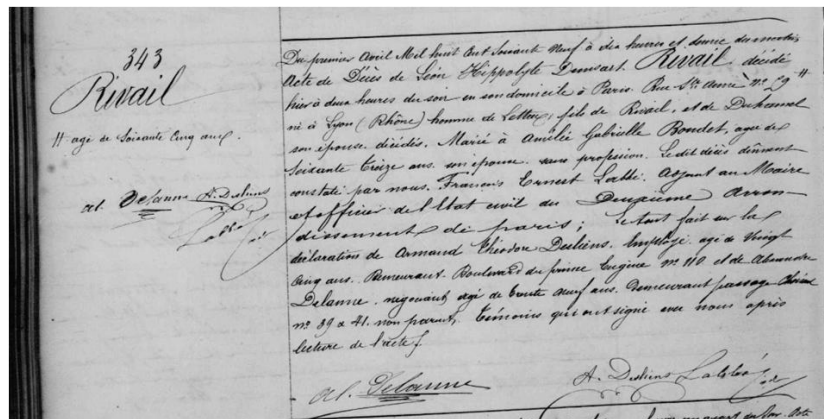 343
Rivail
# agé de Soixante Cinq ans.
al. Delanne A. Desliens
Du premier Avril Mil huit Cent Soixante Neuf à dix heures et demie du matin
Acte de Décès de Léon Hippolyte Denisart Rivail décédé
hier à deux heures du soir en son domicile à Paris. Rue Ste Anne No 59 #
né à Lyon (Rhône) homme de Lettres, fils de Rivail, et de Duhamel
son épouse décédés. Marié à Amélie Gabrielle Boudet, agée de
Soixante Treize ans son épouse sans profession. Le dit décès dûment
constaté par nous. François Ernest Labbé. Adjoint au Maire
et officier de l'Etat civil du Deuxième Arron-
dissement de paris; Le tout fait sur la
déclaration de Armand Théodore Desliens. Employé agé de Vingt
Cinq ans. Demeurant Boulevard du prince Eugène No 110 et de Alexandre
Delanne. négociant agé de trente neuf ans. Demeurant passage Choiseul
No 39 & 41. non parents, témoins qui ont signé avec nous après
lecture de l'acte.
al. Delanne A. Desliens